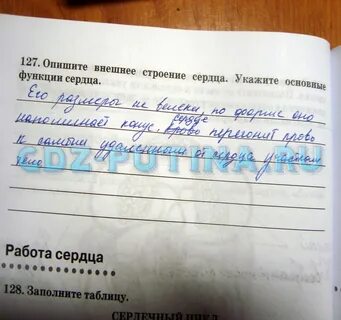 127. Опишите внешнее строение сердца. Укажите основные
функции сердца.
Его размеры не велеки, по форме оно
напоминает конус. сердце перегонит крово
к самым удаленным от сердца участкам
тело
GDZ-PUTINA.RU
Работа сердца
128. Заполните таблицу.
СЕРДЕЧНЫЙ ЦИКЛ